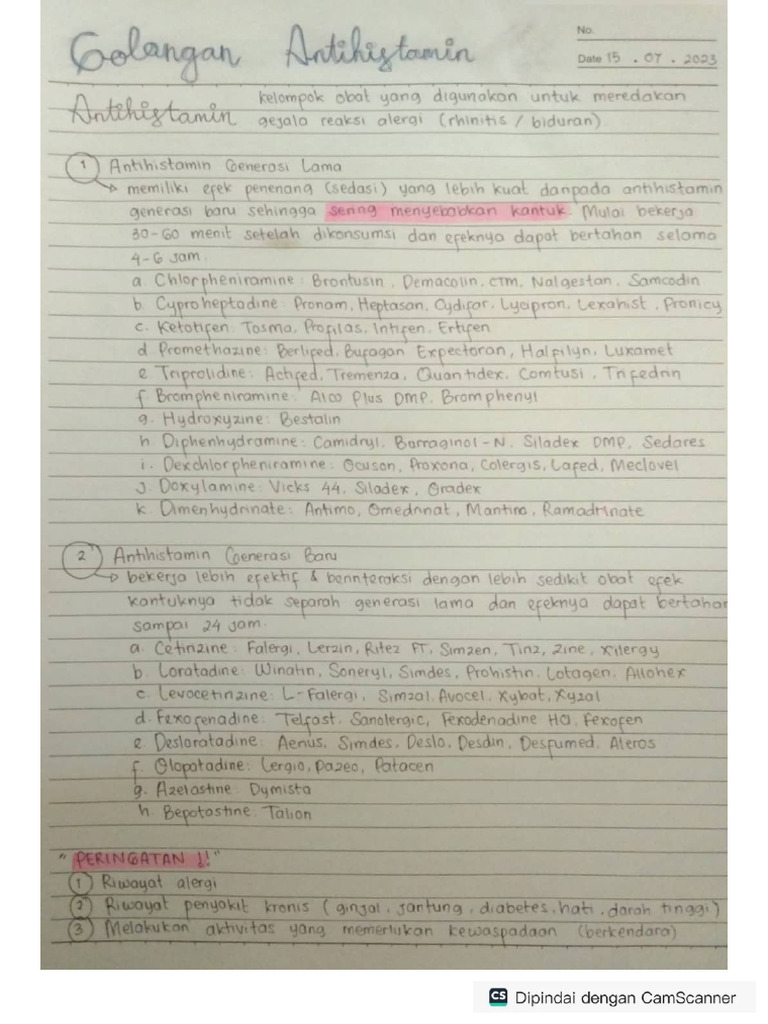 Golangan Antihistamin
No.
Date 15 . 07 . 2023
Antihistamin kelompok obat yang digunakan untuk meredakan
gejala reaksi alergi (rhinitis / biduran)
1 Antihistamin Generasi Lama
memiliki efek penenang (sedasi) yang lebih kuat daripada antihistamin
generasi baru sehingga sering menyebabkan kantuk. Mulai bekerja
30-60 menit setelah dikonsumsi dan efeknya dapat bertahan selama
4-6 jam.
a. Chlorpheniramine : Brontusin, Demacolin, CTM, Nalgestan, Samcodin
b. Cyproheptadine : Pronam, Heptasan, Cydifar, Lycipron, Lexahist, Pronicy
c. Ketotifen : Tosma, Profilas, Intifen, Ertifen
d. Promethazine : Berlifed, Bufagan Expectoran, Halfilyn, Luxamet
e. Triprolidine : Actifed, Tremenza, Quantidex, Comtusi, Trifedrin
f. Brompheniramine : Alco Plus DMP, Bromphenyl
g. Hydroxyzine : Bestalin
h. Diphenhydramine : Camidryl, Borraginol-N, Siladex DMP, Sedares
i. Dexchlorpheniramine : Ocuson, Proxona, Colergis, Lafed, Meclovel
j. Doxylamine : Vicks 44, Siladex, Oradex
k. Dimenhydrinate : Antimo, Omedrinat, Mantino, Ramadrinate
2 Antihistamin Generasi Baru
bekerja lebih efektif & berinteraksi dengan lebih sedikit obat efek
kantuknya tidak separah generasi lama dan efeknya dapat bertahan
sampai 24 jam.
a. Cetirizine : Falergi, Lerzin, Ritez FT, Simzen, Tinz, Zine, Xilergy
b. Loratadine : Winatin, Soneryl, Simdes, Prohistin, Lotagen, Allohex
c. Levocetirizine : L-Falergi, Simzal, Avocel, Xybat, Xyzal
d. Fexofenadine : Telfast, Sanolergic, Fexodenadine HCl, Fexofen
e. Desloratadine : Aerius, Simdes, Deslo, Desdin, Despumed, Aleros
f. Olopatadine : Lergio, Pazeo, Patacen
g. Azelastine : Dymista
h. Bepotastine : Talion
" PERINGATAN !! "
1 Riwayat alergi
2 Riwayat penyakit kronis (ginjal, jantung, diabetes, hati, darah tinggi)
3 Melakukan aktivitas yang memerlukan kewaspadaan (berkendara)
CS Dipindai dengan CamScanner